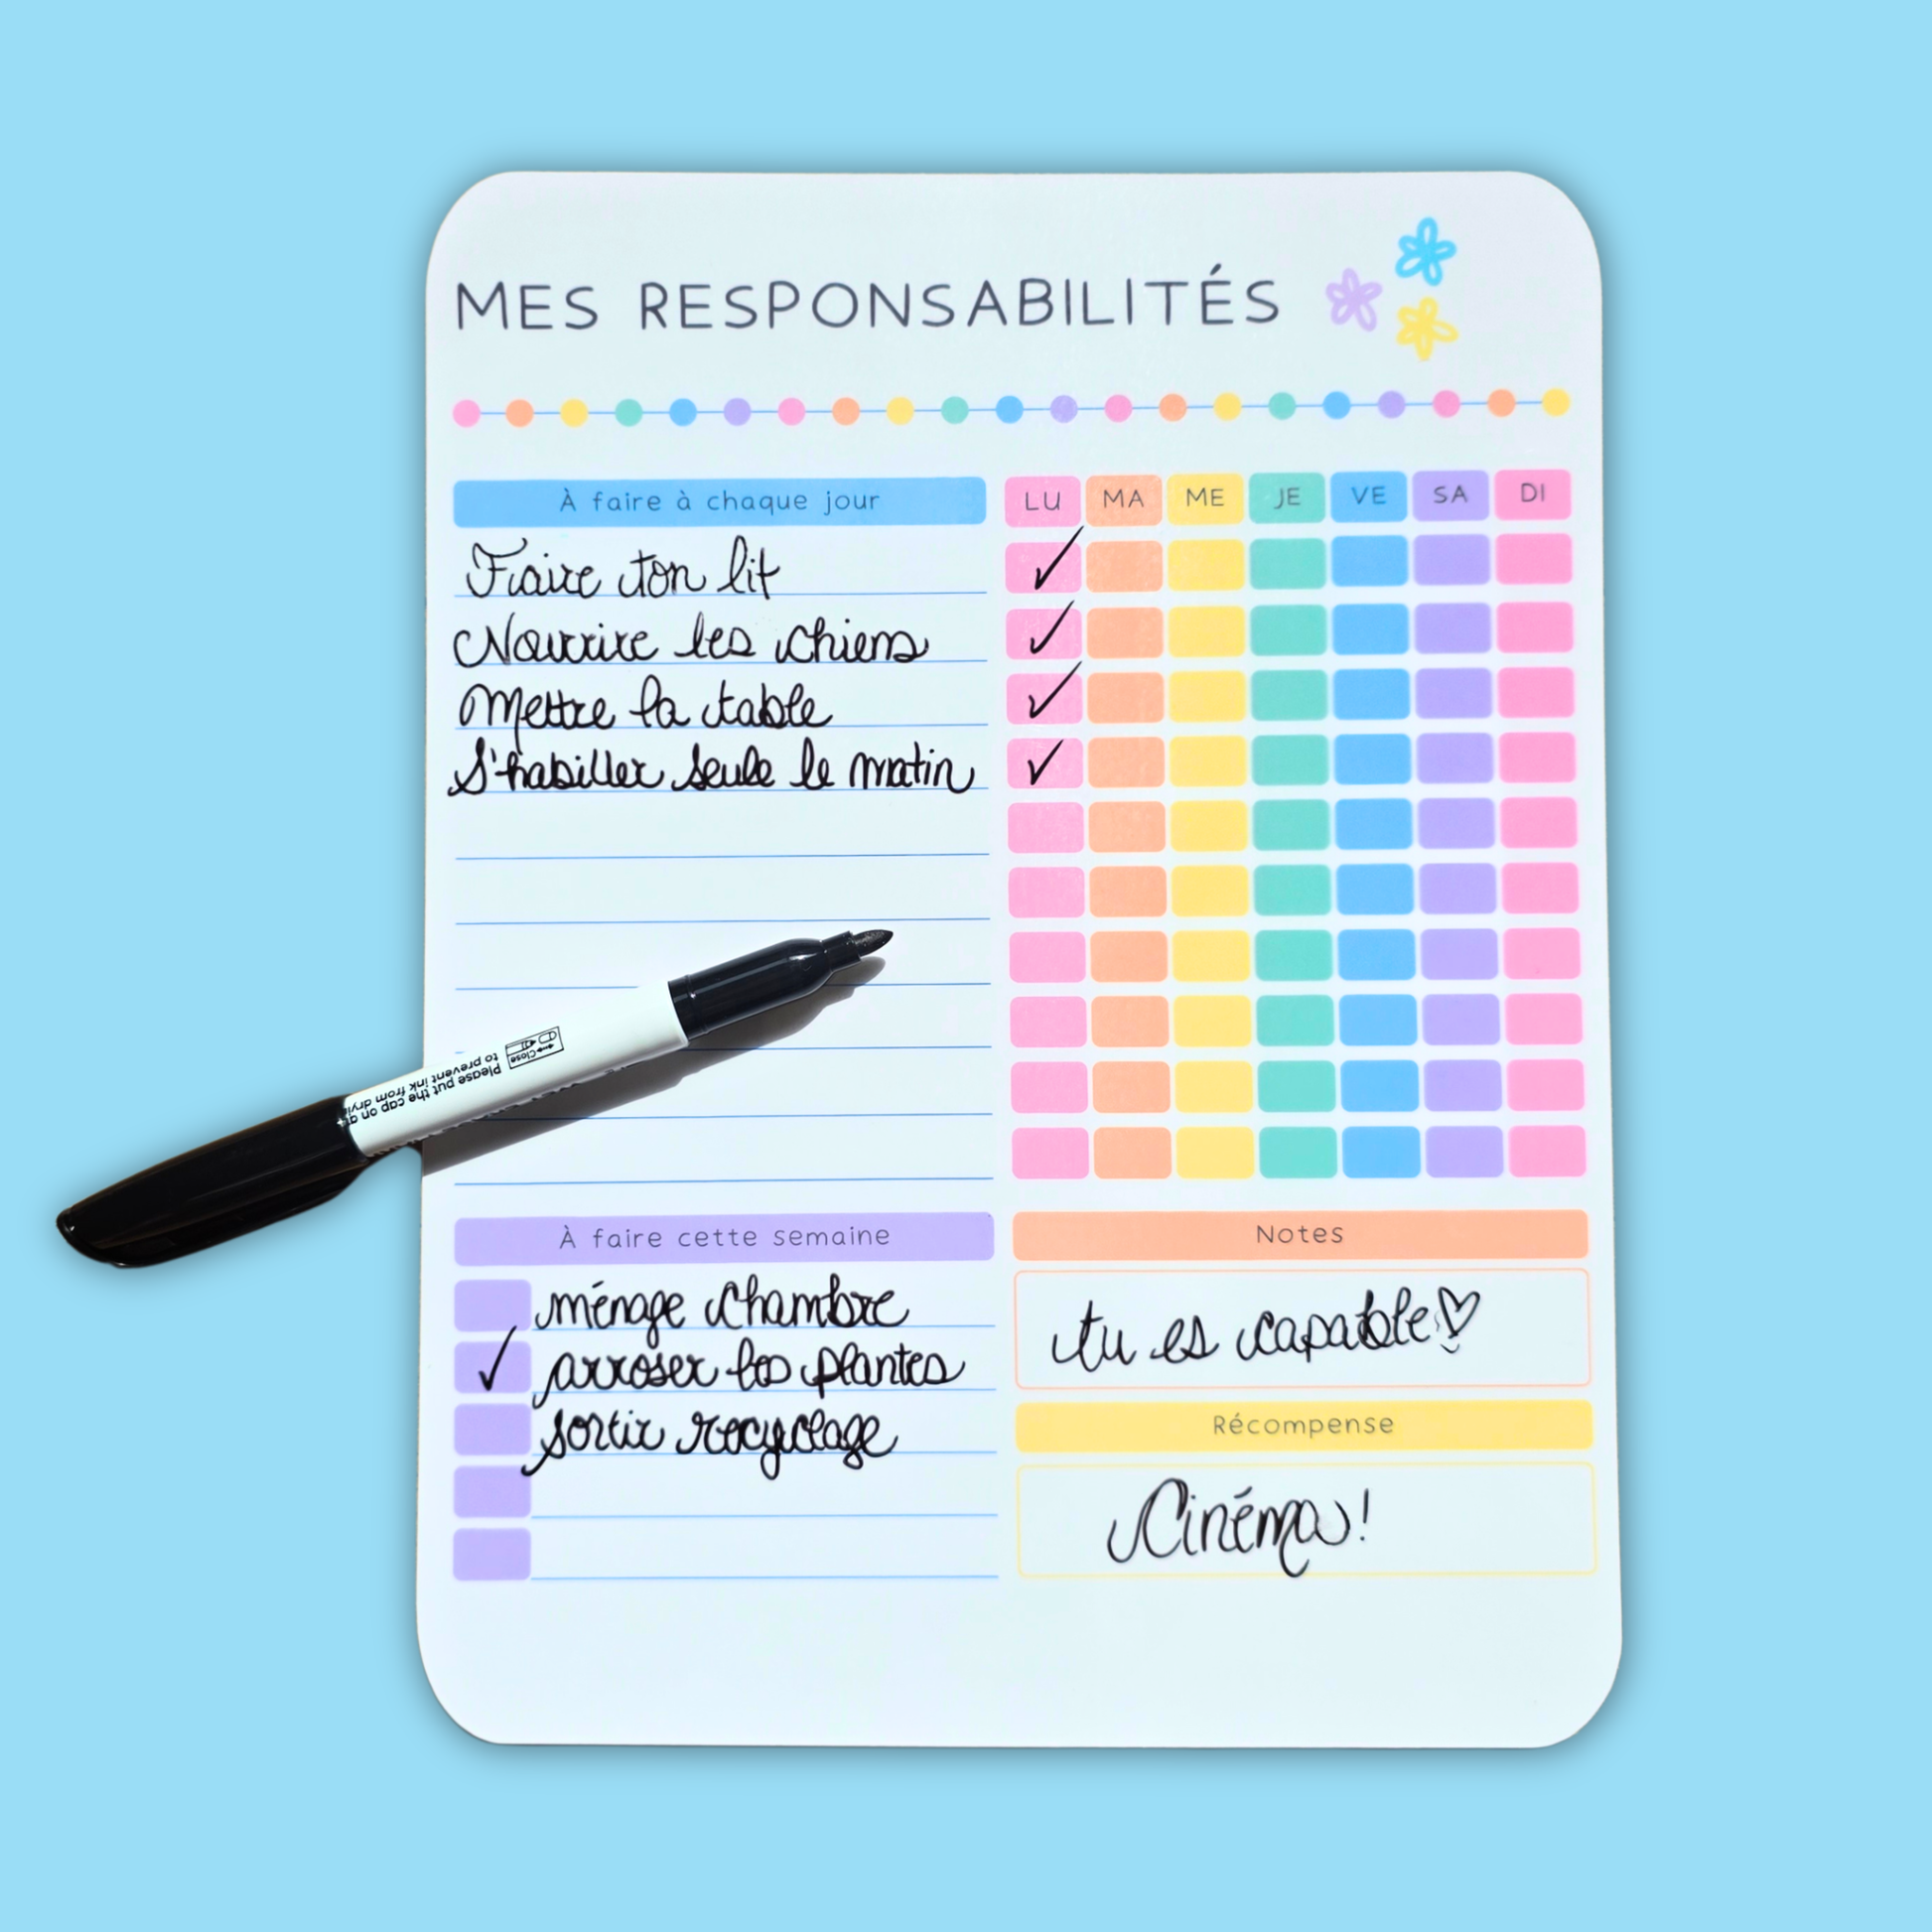 MES RESPONSABILITÉS
À faire à chaque jour
LU MA ME JE VE SA DI
Faire ton lit
Nourrire les chiens
Mettre la table
S'habiller seule le matin
Close
Please put the cap on
to prevent ink from
À faire cette semaine
ménage chambre
arroser les plantes
sortir recyclage
Notes
tu es capable
Récompense
Cinéma!